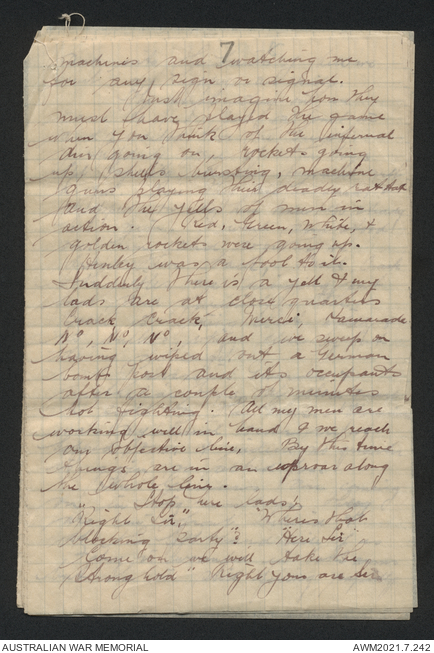 7
machines and watching me
for any sign or signal.
Just imagine how they
must have played the game
when you think of the infernal
din going on, rockets going
up, shells bursting, machine
guns playing their deadly rat tat
and the yells of men in
action. Red, Green, White, &
golden rockets were going up.
Henley was a fool to it.
Suddenly there is a yell & my
lads are at close quarters
Crack Crack, Merci, Kamarade
No, No, No, and we sweep on
having wiped out a German
bomb post and its occupants
after a couple of minutes
hot fighting. All my men are
working well in hand & we reach
our objective line. By this time
things are in an uproar along
the whole line.
"Stop here lads",
"Right Sir", "Where's that
blocking party"? "Here Sir"
"Come on we will take the
strong hold" "Right you are Sir
AUSTRALIAN WAR MEMORIAL
AWM2021.7.242